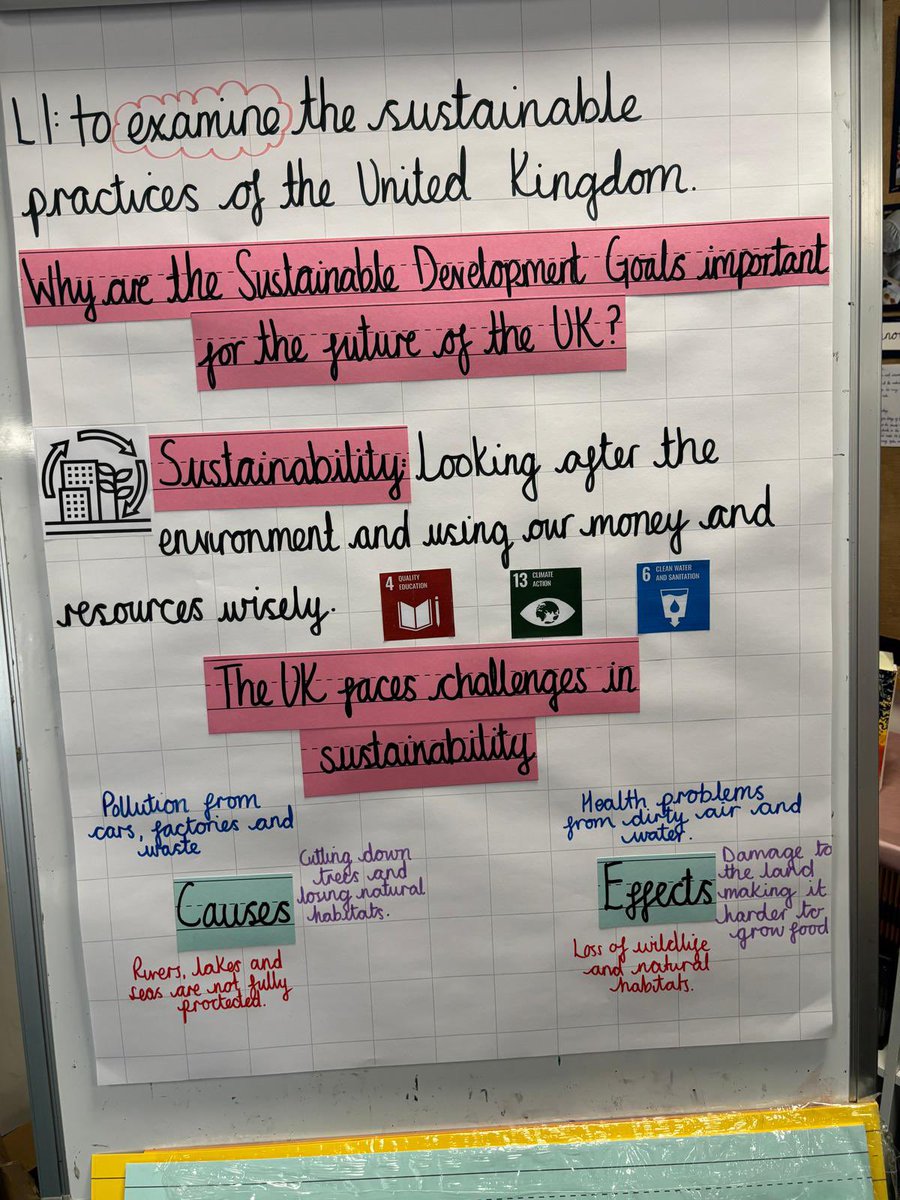 LI: to examine the sustainable
practices of the United Kingdom.
Why are the Sustainable Development Goals important
for the future of the UK?
Sustainability: Looking after the
environment and using our money and
resources wisely.
4 QUALITY
EDUCATION
13 CLIMATE
ACTION
6 CLEAN WATER
AND SANITATION
The UK faces challenges in
sustainability
Pollution from
cars, factories and
waste
Cutting down
trees and
losing natural
habitats.
Causes
Rivers, lakes and
seas are not fully
proctected.
Health problems
from dirty air and
water.
Effects
Damage to
the land
making it
harder to
grow food
Loss of wildlife
and natural
habitats.